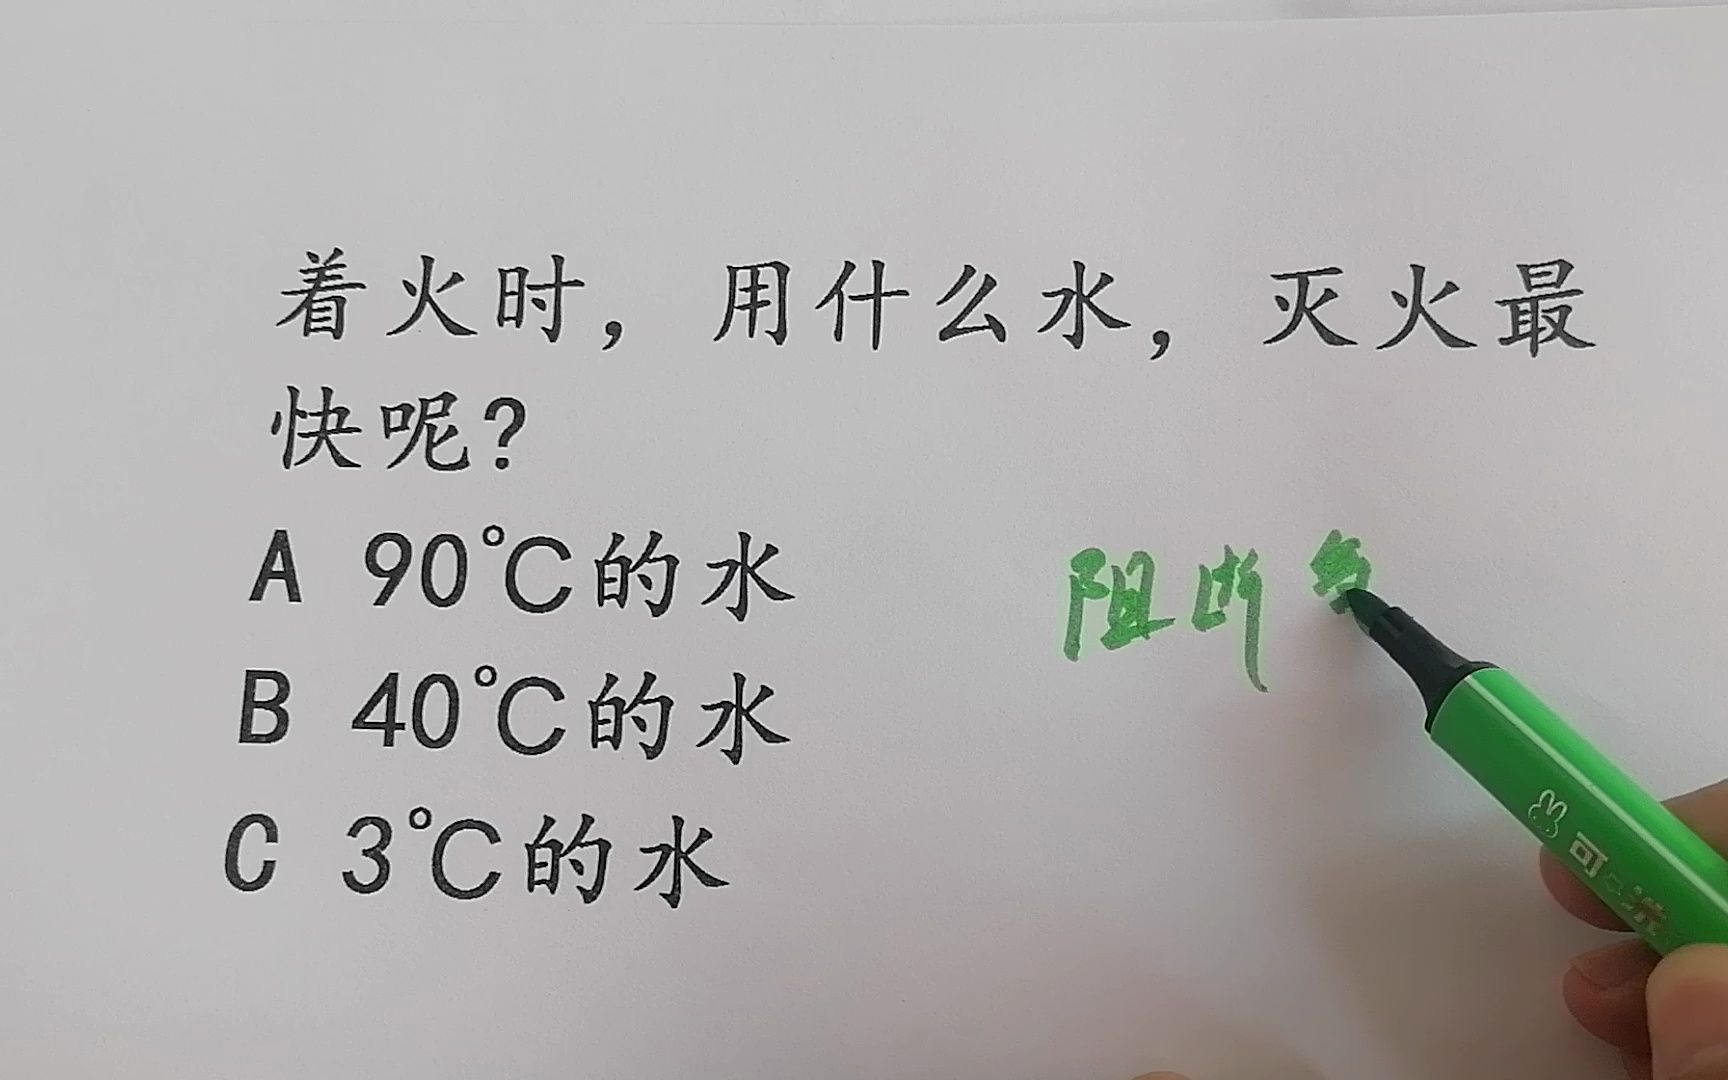 着火时，用什么水，灭火最
快呢？
A 90℃的水
B 40℃的水
C 3℃的水
阻断
可
洗